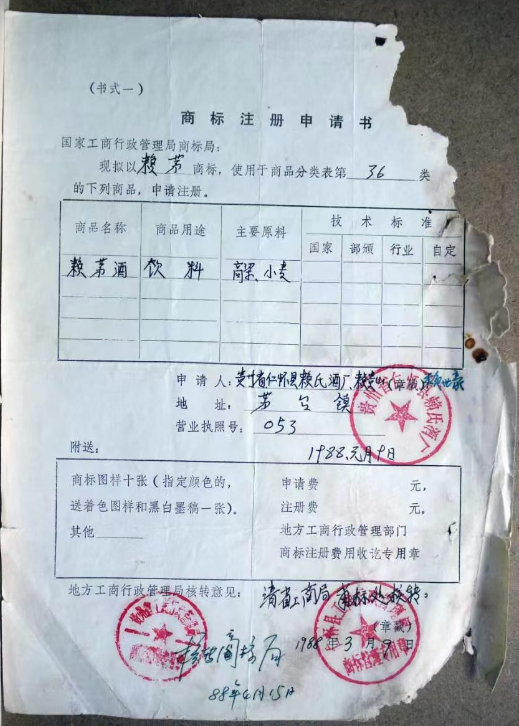 （书式一）
商标注册申请书
国家工商行政管理局商标局：
现拟以 赖茅 商标，使用于商品分类表第 36 类
的下列商品，申请注册。
商品名称 商品用途 主要原料 技术标准
国家 部颁 行业 自定
赖茅酒 饮料 高粱、小麦
申请人：贵州省仁怀县赖氏酒厂 （章戳）
地址： 茅台镇
营业执照号： 053
附送： 1988元月9日
商标图样十张（指定颜色的， 申请费 元，
送着色图样和黑白墨稿一张）。 注册费 元。
其他 地方工商行政管理部门
商标注册费用收讫专用章
地方工商行政管理局核转意见： 请省工商局商标处核转。
（章戳）
1988年3月9日
88年4月15日